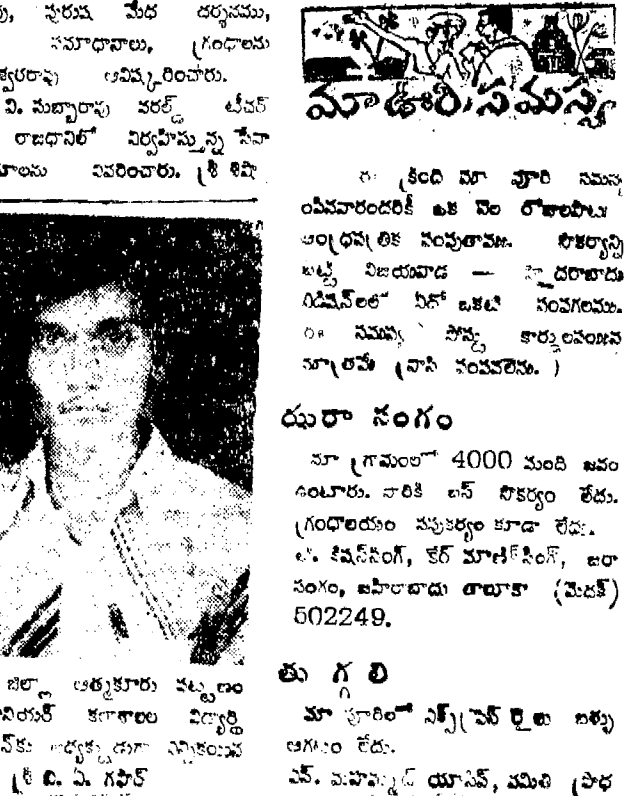 పురుష మేధ దర్శనము,
సమాధానాలు, గ్రంథాలను
ఆవిష్కరించారు.
వి. సుబ్బారావు వరల్డ్ టీచర్
రాజధానిలో నిర్వహిస్తున్న సేవా
వివరించారు. శ్రీ శిషి
జిల్లా ఆత్మకూరు పట్టణం
కళాశాలల విద్యార్థి
అధ్యక్షుడుగా ఎన్నికయిన
శ్రీ వి. ఏ. గఫార్
మాఊరి సమస్య
ఈ క్రింది మా వూరి సమస్య
ఒక నెల రోజులపాటు
ఆంధ్రపత్రిక పంపుతాము. సౌకర్యాన్ని
బట్టి విజయవాడ — హైదరాబాదు
ఎడిషన్‌లలో ఏదో ఒకటి పంపగలము.
ఈ సమస్య పోస్టు
మాత్రమే వ్రాసి పంపవలెను. )
ఝరా సంగం
మా గ్రామంలో 4000 మంది జనం
ఉంటారు. వారికి బస్ సౌకర్యం లేదు.
గ్రంథాలయం సౌకర్యం కూడా లేదు.
కిషన్‌సింగ్, కేర్ మాణిక్‌సింగ్, ఝరా
సంగం, జహీరాబాదు తాలూకా (మెదక్)
502249.
తుగ్గలి
మా వూరిలో ఎక్స్‌ప్రెస్ రైలు బళ్ళు
ఆగటం లేదు.
ఎన్. మహమ్మద్ యూసఫ్, సమితి ప్రాథ